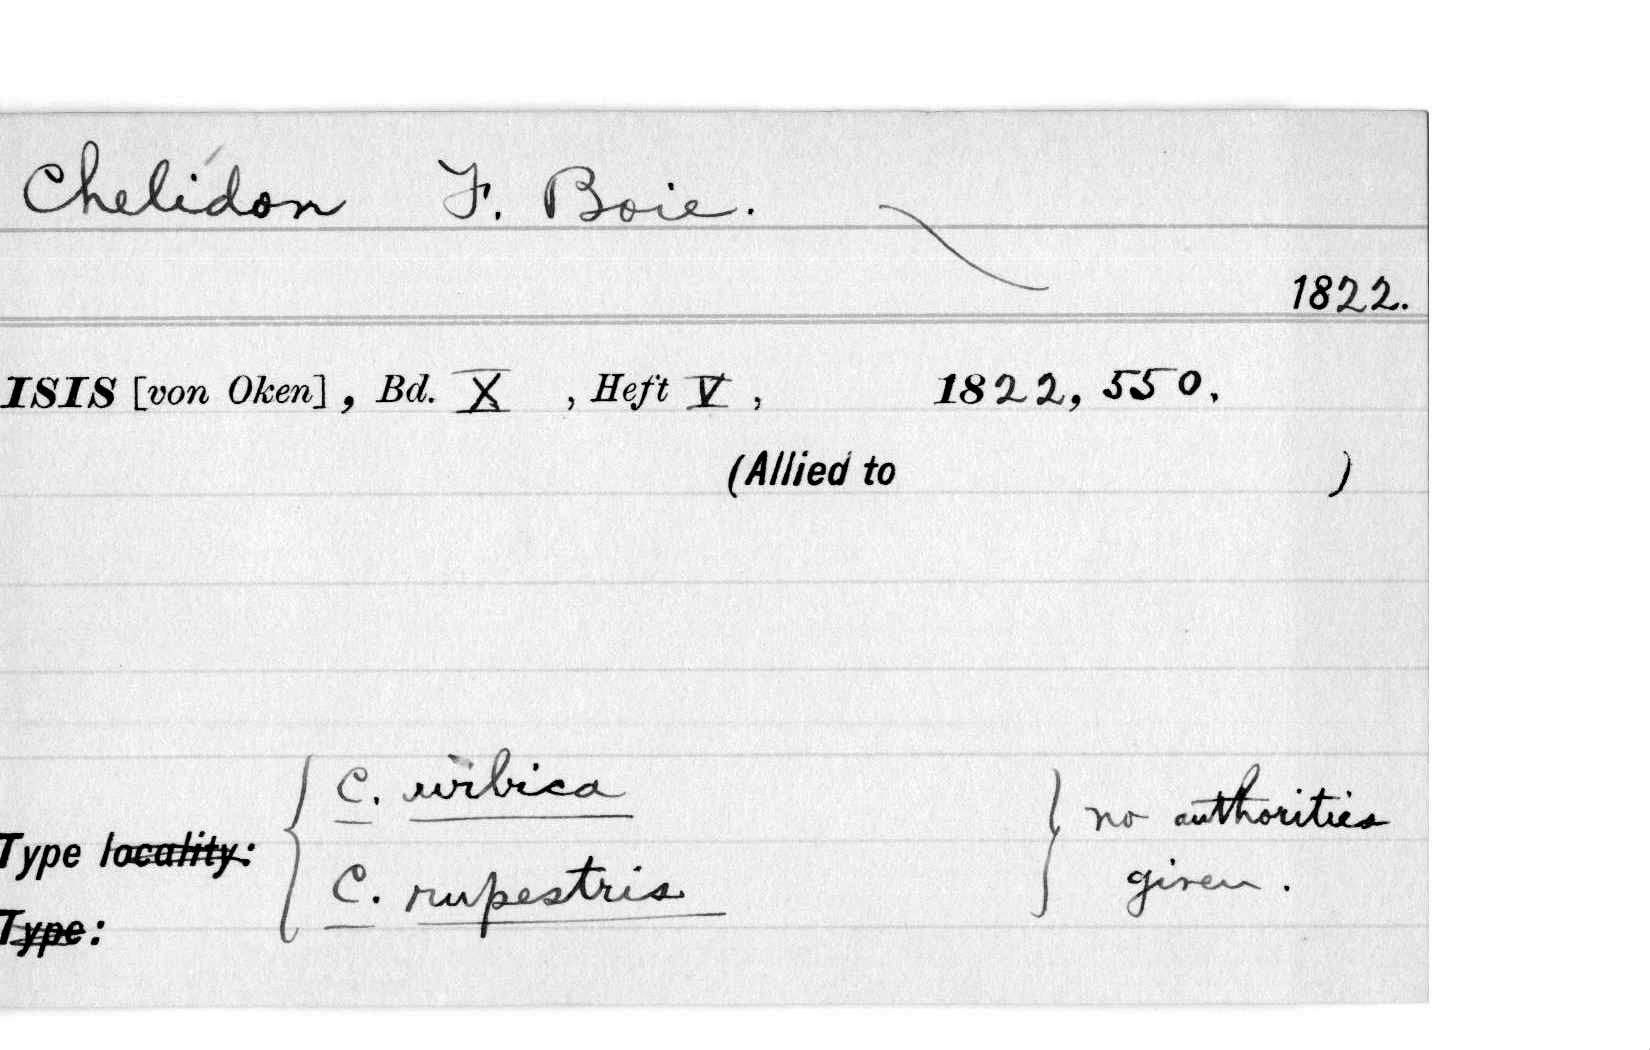 Chelidon F. Boie.
1822.
ISIS [von Oken], Bd. X, Heft V, 1822, 550.
(Allied to )
C. urbica
Type locality: no authorities
C. rupestris given.
Type: